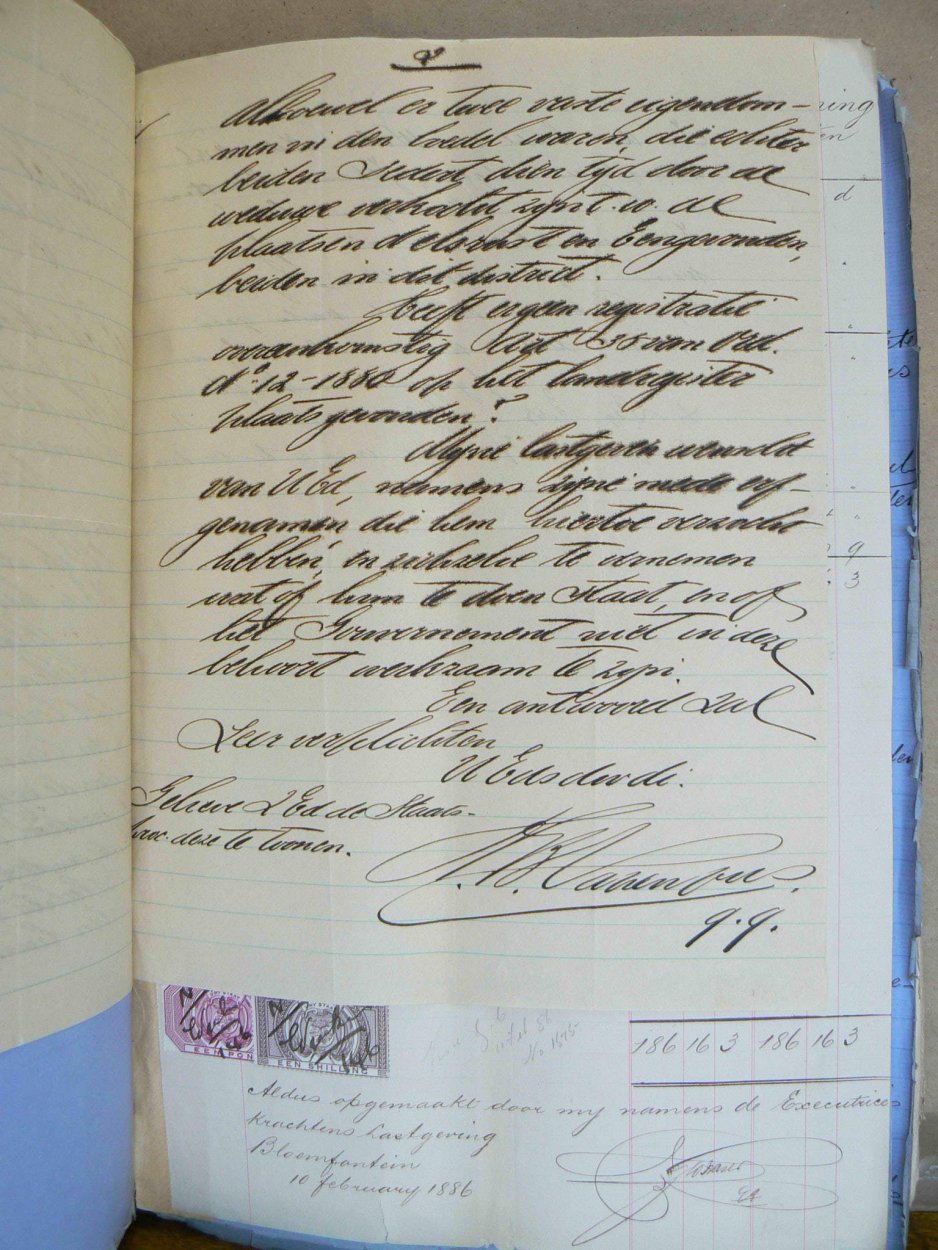 2
alhoewel er twee vaste eigendom-
men in den boedel waren, die echter
beiden sedert dien tijd door de
weduwe verkocht zijn t.w. de
plaatsen Melsrust en Eengevonden,
beiden in dit district.
Heeft er geen registratie
overeenkomstig Art 35 van Ord.
No 12 - 1880 op het landregister
plaats gevonden?
Mijne lastgever wenscht
van UEd, namens zijne mede erf-
genamen die hem hiertoe verzocht
hebben, en zichzelve te vernemen
wat of hun te doen staat, en of
het Gouvernement niet in deze
behoort werkzaam te zijn.
Een antwoord zal
Zeer verplichten
UEds dw di.
Gelieve UEd de Staats-
proc. deze te toonen.
q.q.
EEN PON
EEN SHILLING
186 16 3 186 16 3
Aldus opgemaakt door my namens de Executrice
krachtens Lastgeving
Bloemfontein
10 february 1886